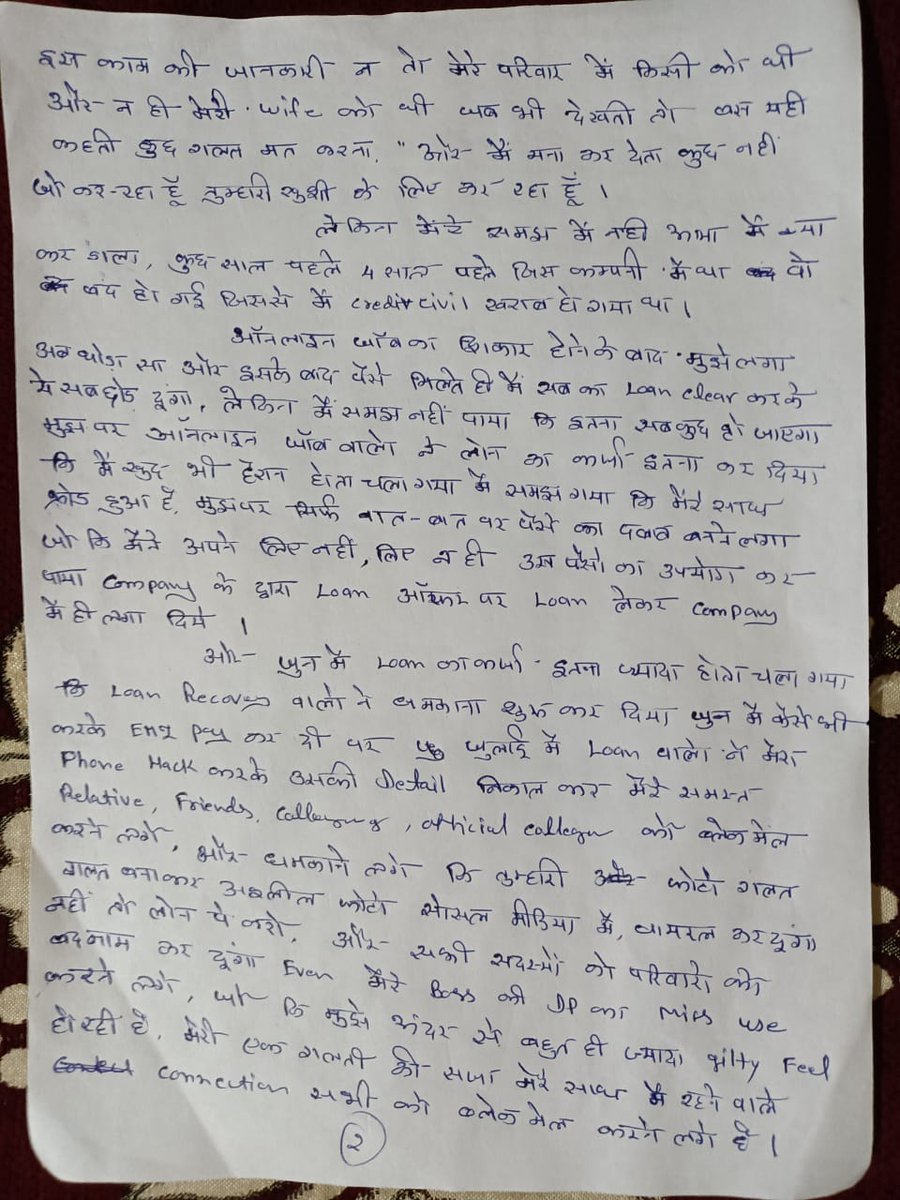 इस काम की जानकारी न तो मेरे परिवार में किसी को थी
और न ही मेरी wife को थी जब भी देखती तो बस यही
कहती कुछ गलत मत करना, " और मैं मना कर देता कुछ नहीं
जो कर रहा हूँ तुम्हारी खुशी के लिए कर रहा हूँ ।
लेकिन मेरे समझ में नही आया में क्या
कर डाला, कुछ साल पहले 4 साल पहले जिस कम्पनी में था वो
बंद हो गई जिससे में credit civil खराब हो गया था ।
ऑनलाइन जॉब का शिकार होने के बाद मुझे लगा
अब थोड़ा सा और इसके बाद पैसे मिलते ही मैं सब का Loan clear करके
ये सब छोड़ दूंगा, लेकिन मैं समझ नहीं पाया कि इतना सबकुछ हो जाएगा
मुझ पर ऑनलाइन जॉब वालो ने लोन का कर्जा इतना कर दिया
कि मैं खुद भी हैरान होता चला गया मैं समझ गया कि मेरे साथ
फ्रोड हुआ है, मुझपर सिर्फ बात-बात पर पैसे का दबाव बनने लगा
जो कि मैंने अपने लिए नहीं, लिए न ही उस पैसो का उपयोग कर
पाया Company के द्वारा Loan ऑफर पर Loan लेकर Company
में ही लगा दिये ।
और जुन में Loan का कर्जा इतना ज्यादा होता चला गया
कि Loan Recovery वालो ने धमकाना शुरू कर दिया जुन में कैसे भी
करके EMI Pay कर दी पर जुलाई में Loan वालो ने मेरा
Phone Hack करके उसकी Detail निकाल कर मेरे समस्त
Relative, Friends, , official को ब्लेकमेल
करने लगे, और धमकाने लगे कि तुम्हारी फोटो गलत
गलत बनाकर अश्लील फोटो सोसल मीडिया में, वायरल कर दूंगा
नहीं तो लोन पे करो, और सभी सदस्यों को परिवारो को
बदनाम कर दूंगा Even मेरे Boss की DP का miss use
करने लगे, कि मुझे अंदर से बहुत ही ज्यादा gilty Feel
हो रही है, मेरी एक गलती की सजा मेरे साथ में रहने वाले
connection सभी को ब्लेकमेल करने लगे है ।
२